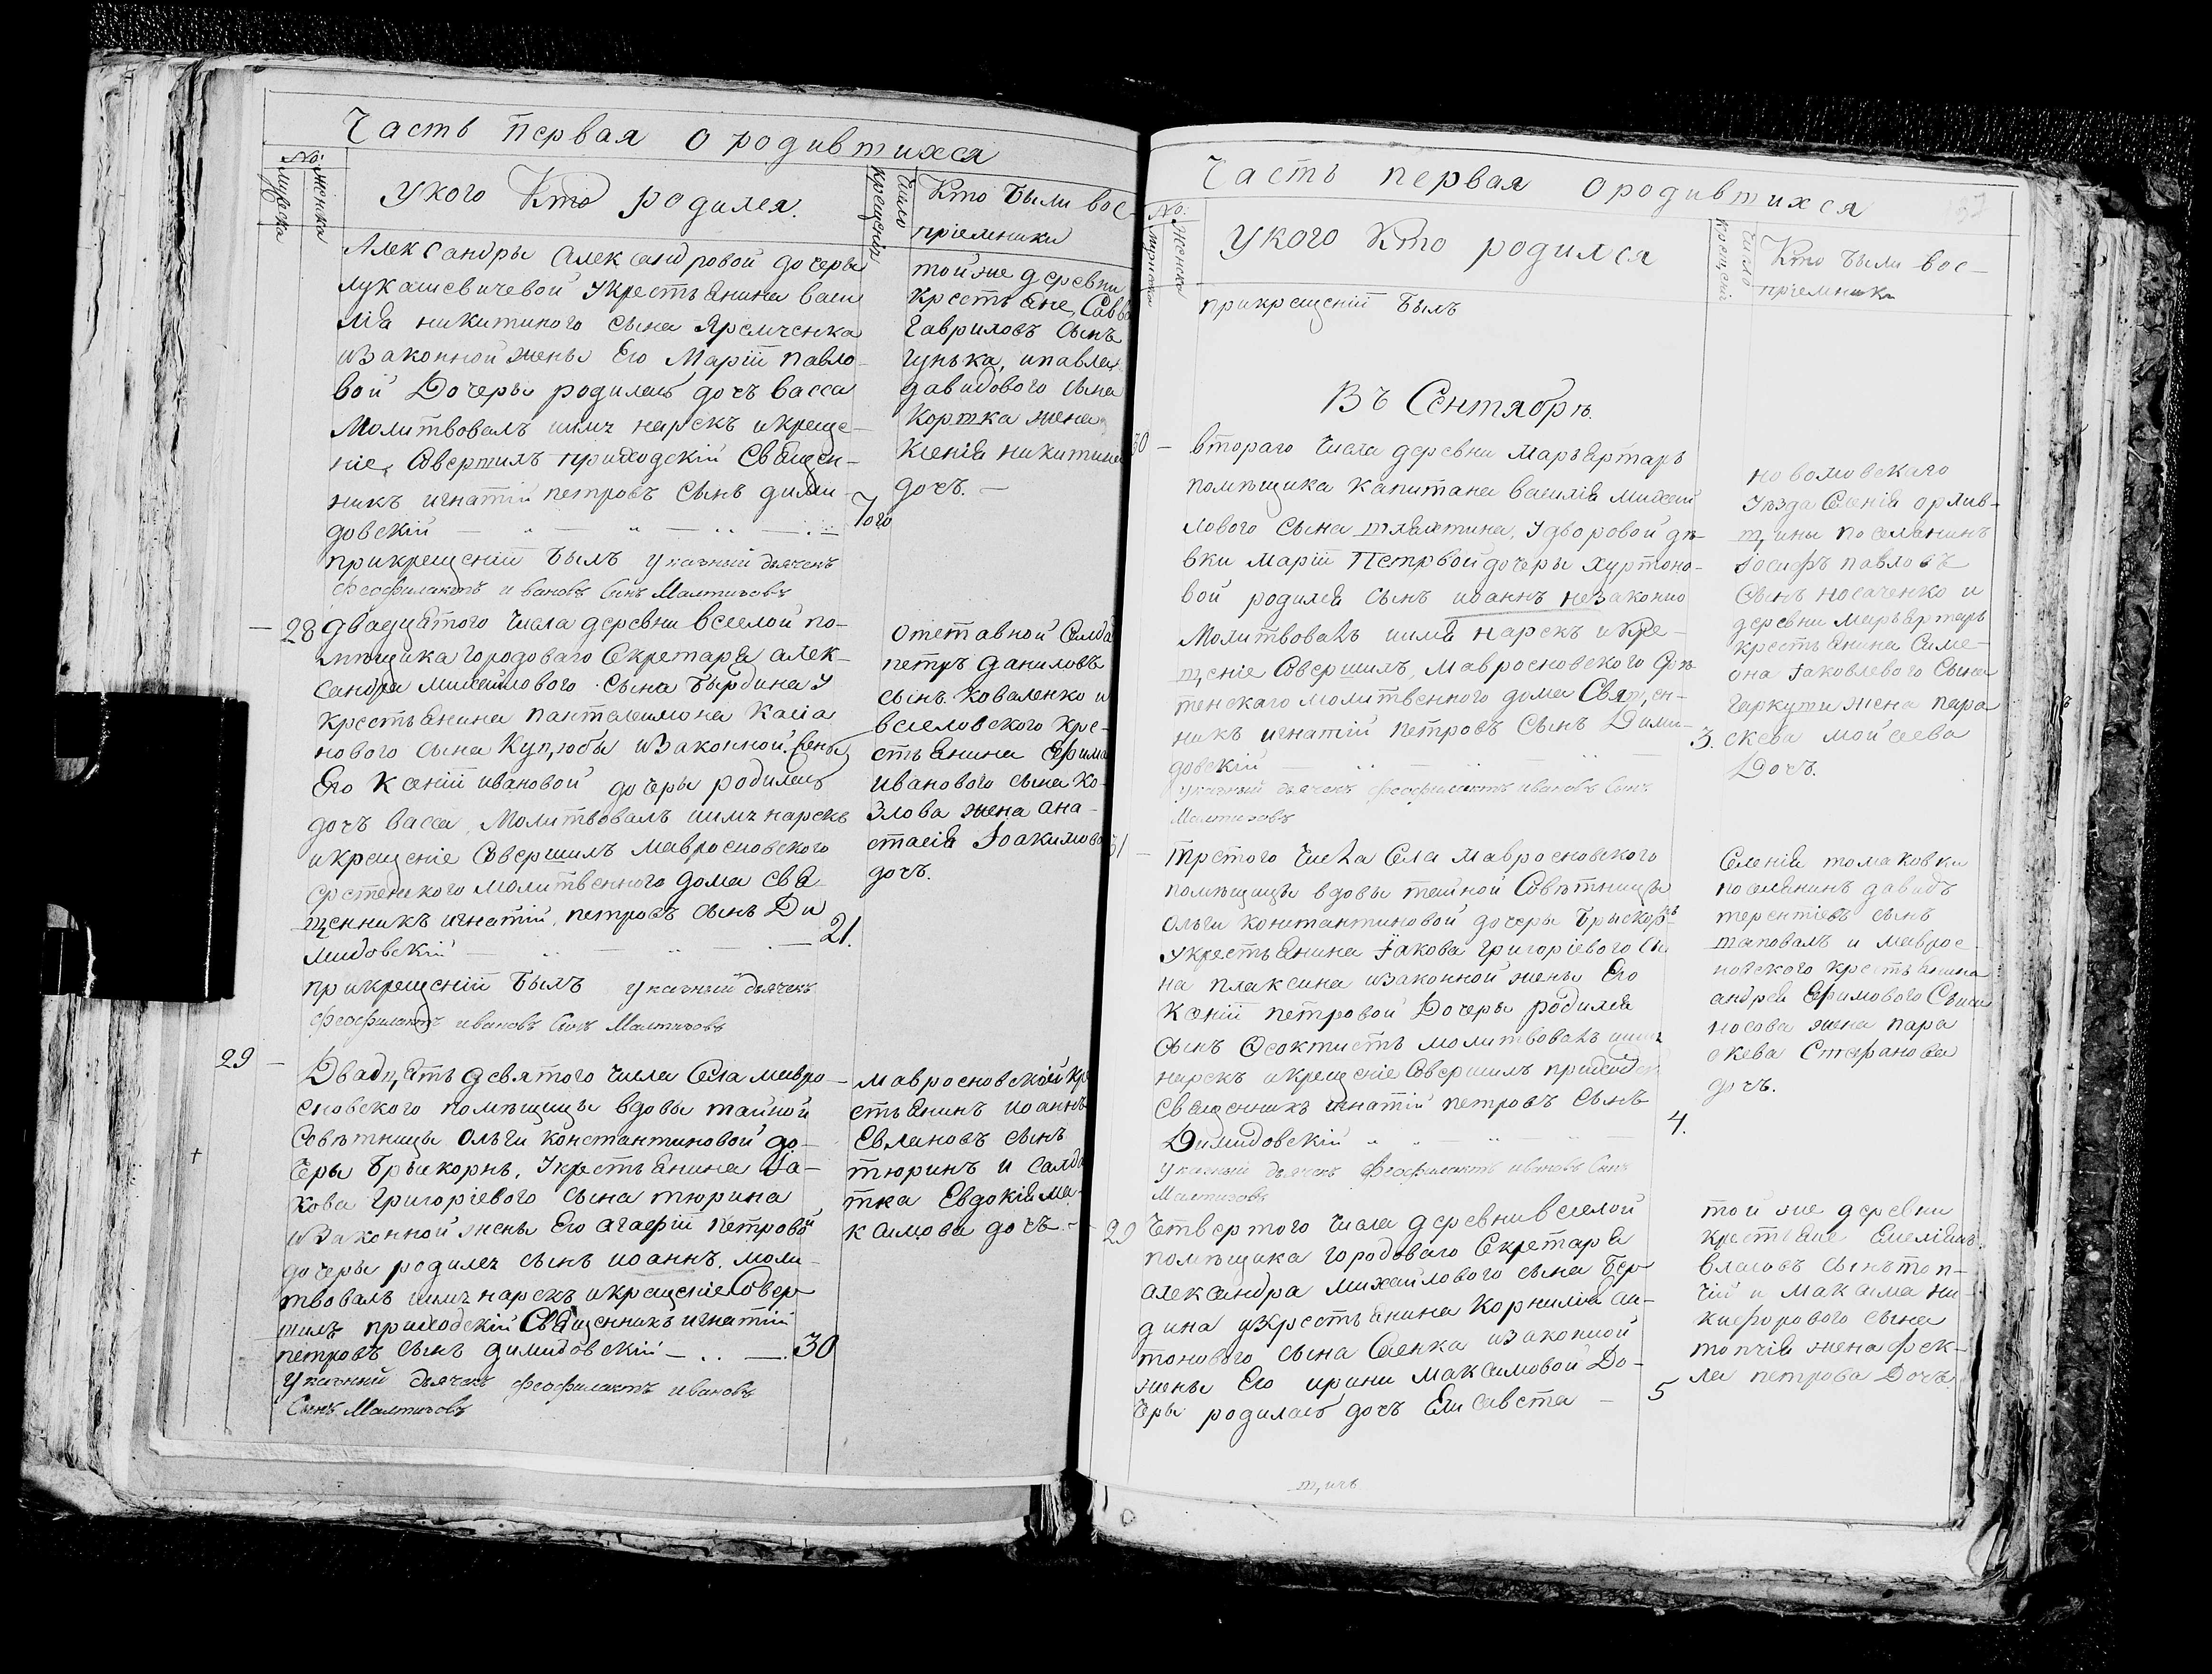 Часть первая о родившихся
No:
мужеска
женска
У кого Кто родился.
Число
крещенія
Кто были вос-
пріемники
Александры Александровой дочеры
лукашевичевой у крестьянина васи
лія никитиного сына Яремченка
изаконной жены Его Маріи павло
вой Дочеры родилась дочъ васса
Молитвовалъ имя нарекъ и креще-
ніе совершилъ приходскій Священ-
никъ игнатій петровъ сынъ дими
довскій
7ого
прикрещеніи былъ указный дьячекъ
феофилактъ ивановъ Сынъ
той же деревни
крестьяне, Савва
Гавриловъ Сынъ
гунька, и павла
давидового сына
Кортка жена
Ксенія никитина
дочъ.
28 двадцятого числа деревни веселой по-
мѣщика городоваго Секретаря алек-
сандра михайлового сына Бырдина у
крестьянина пантелеимона Касіа
нового сына изаконной жены
Его Ксеніи ивановой дочеры родилась
дочъ васса, Молитвовалъ имя нарекъ
и крещеніе Совершилъ мавросновского
срѣтенского молитвенного дома свя
щенникъ игнатій, петровъ сынъ Ди
мидовскій
21.
прикрещеніи былъ указный дьячекъ
феофилактъ ивановъ Сынъ
отставной Салда
петръ даниловъ
сынъ Коваленко и
веселовского кре-
стьянина Ефима
иванового сына Ко-
злова жена ана-
стасія Іоакимова
дочъ.
29
Двадцять девятого числа Села мавро-
сновского помѣщицы вдовы тайной
Совѣтницы Ольги константиновой до-
черы Брискорнъ, у крестьянина Іа-
кова григоріевого сына тюрина
изаконной жены Его агафіи петровой
дочеры родился сынъ иоаннъ. моли
твовалъ имя нарекъ и крещеніе Совер
шилъ приходскій Священникъ игнатій
петровъ сынъ димидовскій
30
указный дьячекъ феофилактъ ивановъ
Сынъ
мавросновской кре
стьянинъ иоаннъ
сынъ
тюринъ и салда
тка Евдокія ма-
ксимова дочъ
Часть первая о родившихся
No:
женска
У кого Кто родился
Число
Кто были вос-
пріемники
прикрещеніи былъ
Въ Сентябрѣ.
30
втораго числа деревни
помѣщика капитана василія михай
лового сына, у дворовой дѣ-
вки маріи Петровой дочеры хуртоно-
вой родился сынъ иоаннъ незаконно
Молитвовалъ имя нарекъ и кре-
щеніе Совершилъ, мавросновского Срѣ
тенскаго молитвенного дома Священ-
никъ игнатій петровъ сынъ Дими-
довскій
3.
указный дьячекъ феофилактъ ивановъ Сынъ
новомовскаго
уѣзда селенія
поселянинъ
Іосифъ павловъ
Сынъ носаченко и
деревни
крестьянина Симе-
она Іаковлевого Сына
жена пара
скева мойсеева
Дочъ.
31
третого числа Села мавросновского
помѣщицы вдовы тайной Совѣтницы
Ольги константиновой дочеры Брискорнъ
у крестьянина Іакова григоріевого сы
на плаксина изаконной жены Его
Ксеніи петровой Дочеры родился
сынъ Феоктистъ молитвовалъ имя
нарекъ и крещеніе Совершилъ приходск
священникъ игнатій петровъ Сынъ
Димидовскій
4.
указный дьячекъ феофилактъ ивановъ Сынъ
Селенія томаковки
поселянинъ давидъ
терентіевъ сынъ
шаповалъ и маврос-
новского крестьянина
андрея Ефимового Сына
носова жена пара
скева Стефанова
дочъ.
29
четвертого числа деревни веселой
помѣщика городоваго Секретаря
александра михайлового сына Быр
дина у крестьянина корнилія ан-
тонового сына изаконной
жены Его ирины максимовой До-
черы родилась дочъ Елисавета
5
той же деревни
крестьяне Емеліянъ
власовъ сынъ топ-
чій и Максима ни-
кифорового сына
топчія жена фек-
ла петрова Дочъ.